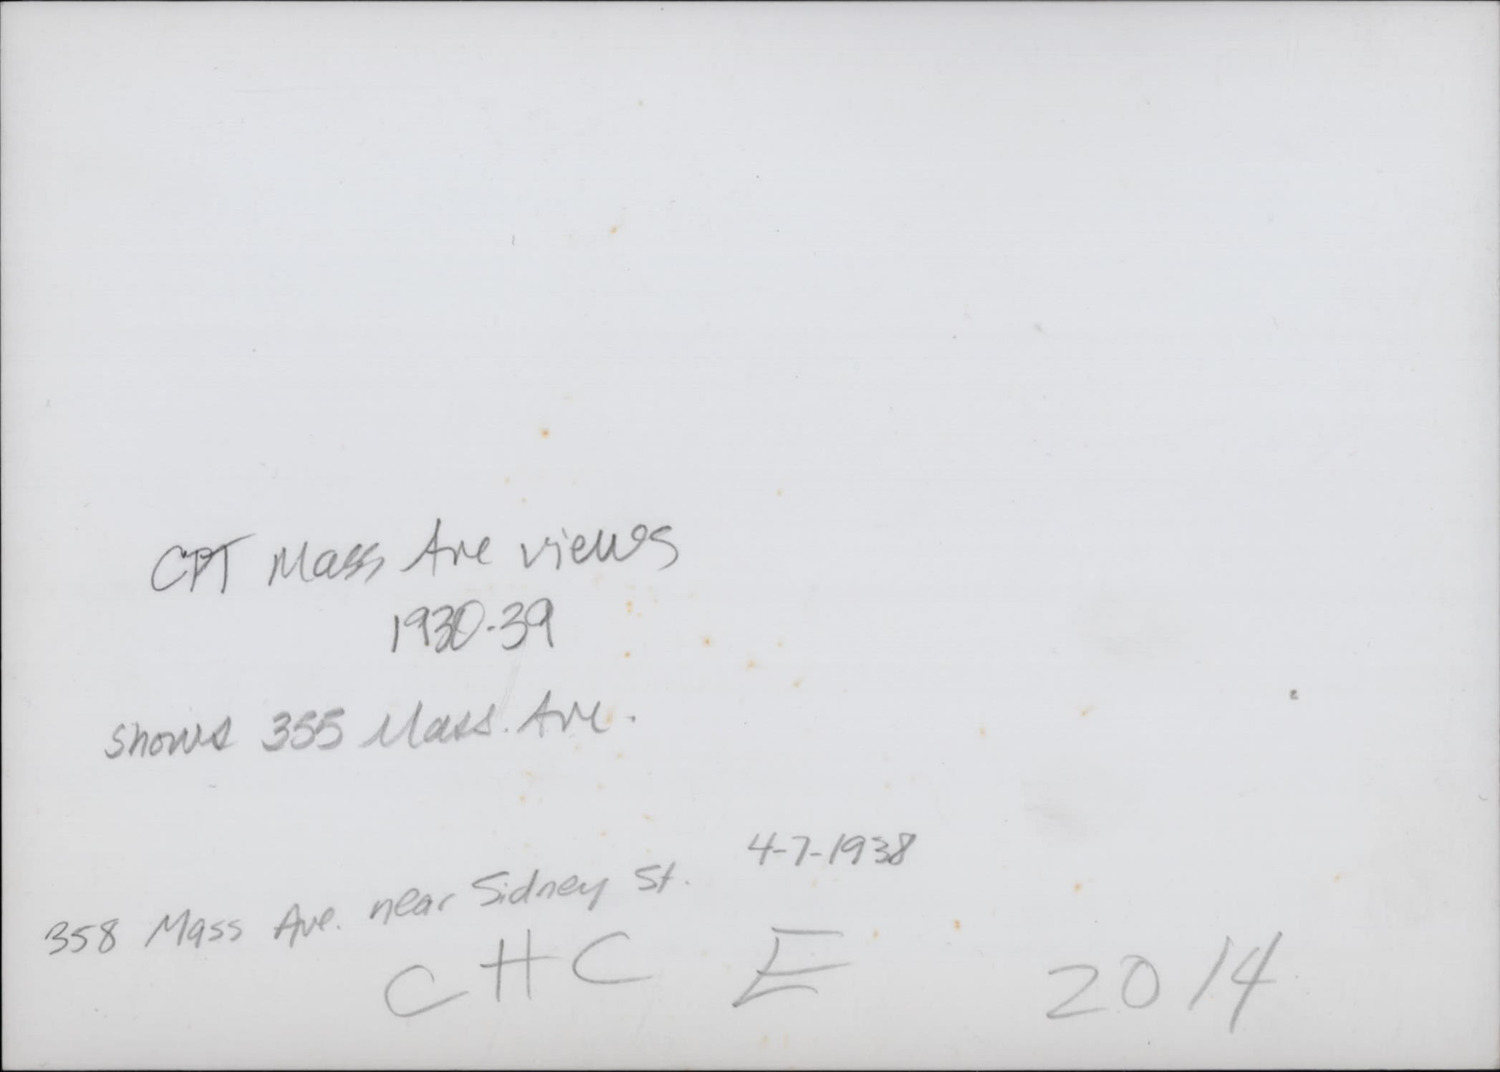 CPT Mass Ave views
1930-39
shows 355 Mass. Ave.
4-7-1938
358 Mass Ave. near Sidney St.
CHC E 2014